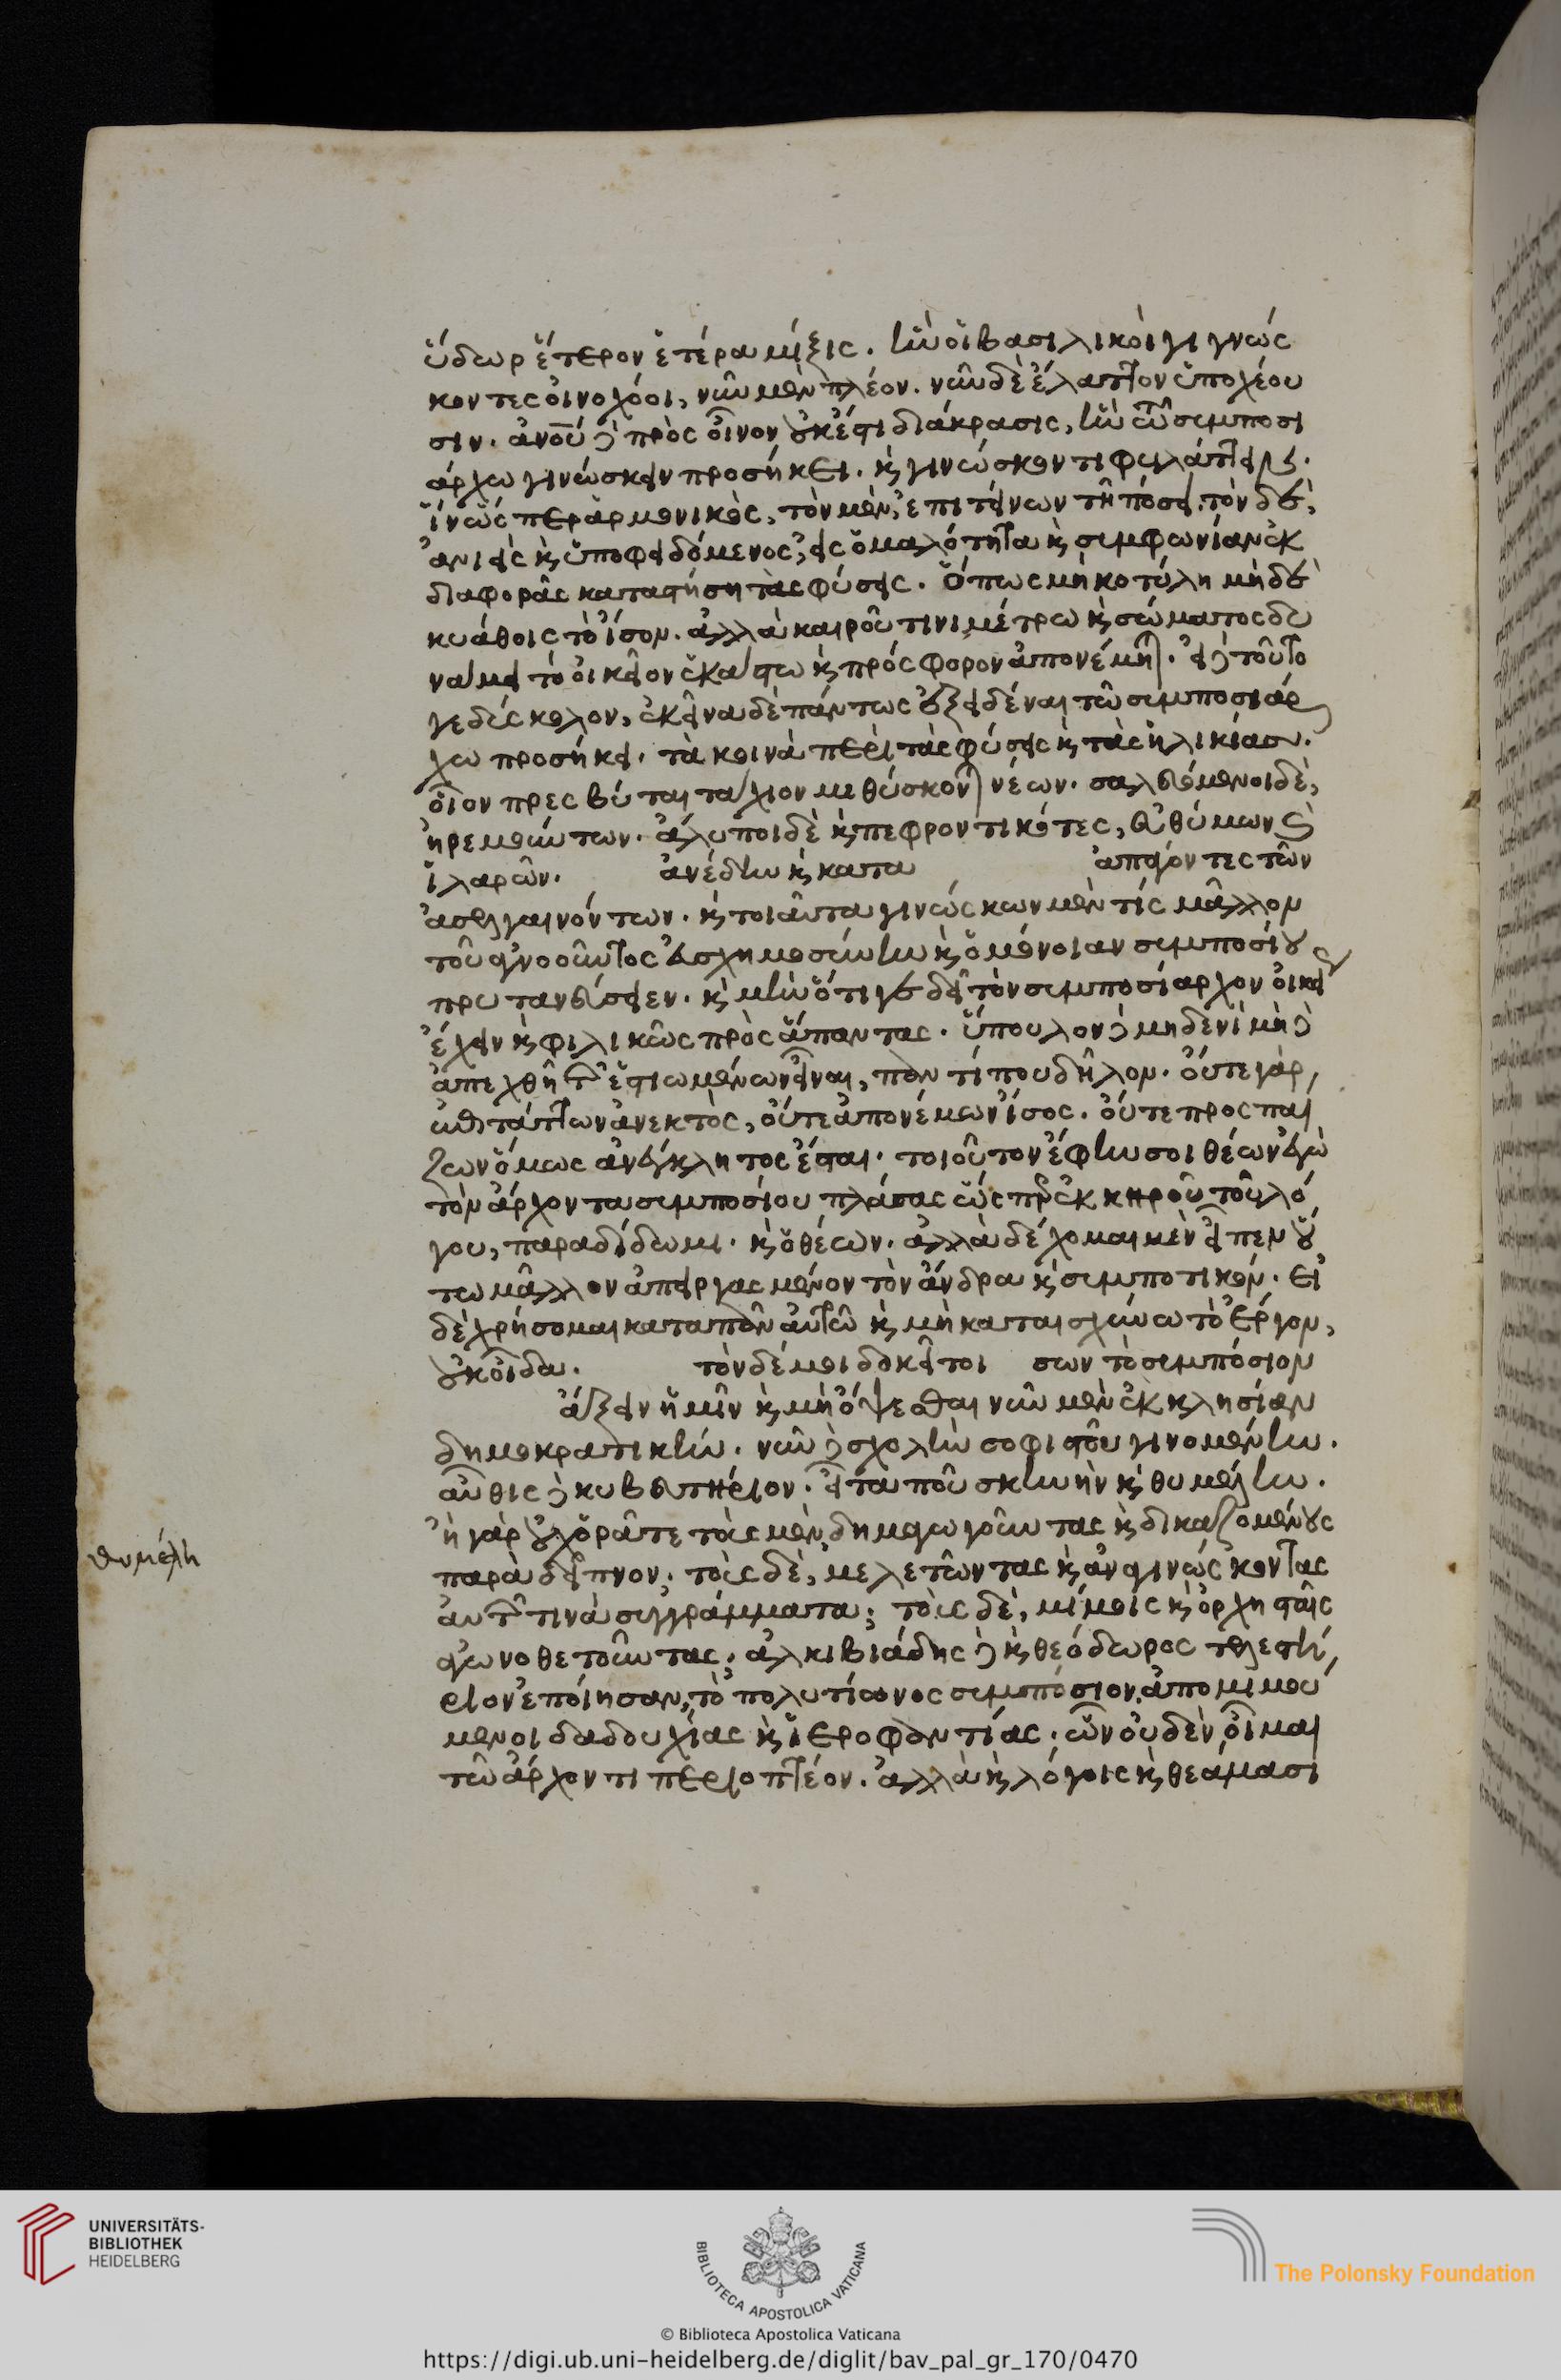 ὕδωρ ἕτερον ἑτέρα μίξις. ἣν οἱ βασιλικοὶ γιγνώς
κοντες οἰνοχόοι, νῦν μὲν πλέον. νῦν δὲ ἔλαττον ὑποχέου
σιν. ἀνοῦ δὲ πρὸς οἶνον οὐκ ἔστι διάκρασις, ἣν τῶ συμποσι
άρχω γινώσκειν προσήκει. καὶ γινώσκοντι φυλάττειν.
ἵν' ὥσπερ ἁρμονικὸς, τὸν μὲν, ἐπιτείνων τῆ πόσει. τὸν δὲ,
ἀνιεὶς καὶ ὑποφειδόμενος, εἰς ὁμαλότητα καὶ συμφωνίαν ἐκ
διαφορᾶς καταστήση τὰς φύσεις. ὅπως μὴ κοτύλη μὴ δὲ
κυάθοις τὸ ἴσον. ἀλλὰ καιροῦ τινι μέτρω καὶ σώματος δυ
νάμει τὸ οἰκεῖον ἑκάστω καὶ πρόσφορον ἀπονέμηται. εἰ δὲ τοῦτο
γε δύσκολον, ἐκεῖνα δὲ πάντως ἐξειδέναι τῶ συμποσιάρ
χω προσήκει. τὰ κοινὰ περὶ τὰς φύσεις καὶ τὰς ἡλικίας.
οἷον πρεσβύται τάχιον μεθύσκονται νέων. σαλευόμενοι δὲ,
ἠρεμούντων. ἄλυποι δὲ καὶ πεφροντικότες, εὐθύμων καὶ
ἱλαρῶν. ἀνέδην καὶ κατα ἀπάγοντες τῶν
ἀσελγαινόντων. καὶ τοιαῦτα γινώσκων μέν τις μᾶλλον
τοῦ ἀγνοοῦντος εὐσχημοσύνην καὶ ὁμόνοιαν συμποσίου
πρυτανεύσειεν. καὶ μὴν ὅτι γε δεῖ τὸν συμποσίαρχον οἰκείως
ἔχειν καὶ φιλικῶς πρὸς ἅπαντας. ὕπουλον δὲ μηδενὶ μὴ δὲ
ἀπεχθῆ τῶν ἑστιωμένων εἶναι, παντί που δῆλον. οὔτε γὰρ,
ἐπιτάττων ἀνεκτὸς, οὔτε ἀπονέμων ἴσος. οὔτε προσπαί
ζων ὅμως ἀνέγκλητος ἔσται. τοιοῦτον ἔφην σοι θέων ἐγὼ
τὸν ἄρχοντα συμποσίου πλάσας ὥσπερ ἐκ κηροῦ τοῦ λό
γου, παραδίδωμι. καὶ ὁ θέων. ἀλλὰ δέχομαι μὲν εἶπεν οὕ
τω μᾶλλον ἀπειργασμένον τὸν ἄνδρα καὶ συμποτικόν. εἰ
δὲ χρήσομαι καταπᾶν αὐτῶ καὶ μὴ καταισχύνω τὸ ἔργον,
οὐκ οἶδα. τὸν δέ μοι δοκεῖ τοι σων τὸ συμπόσιον
ἄξειν ἡμῖν καὶ μὴ ὄψεσθαι νῦν μὲν ἐκκλησίαν
δημοκρατικήν. νῦν δὲ σχολὴν σοφιστοῦ γινομένην.
αὖθις δὲ κυβευτήριον. εἶτα που σκηνὴν καὶ θυμέλην.
ἢ γὰρ οὐχ ὁρᾶτε τοὺς μὲν, δημαγωγοῦντας καὶ δικαζομένους
παρὰ δεῖπνον. τοὺς δὲ, μελετῶντας καὶ ἀναγινώσκοντας
αὑτῶν τινὰ συγγράμματα; τοὺς δὲ, μίμοις καὶ ὀρχησταῖς
ἀγωνοθετοῦντας; ἀλκιβιάδης δὲ καὶ θεόδωρος τελεστή
ριον ἐποίησαν, τὸ πολυτίωνος συμπόσιον, ἀπομιμού
μενοι δαδουχίας καὶ ἱεροφαντίας. ὧν οὐδὲν οἶμαι
τῶ ἄρχοντι περιοπτέον. ἀλλὰ καὶ λόγοις καὶ θεάμασι
θυμέλη
UNIVERSITÄTS-
BIBLIOTHEK
HEIDELBERG
BIBLIOTECA APOSTOLICA VATICANA
The Polonsky Foundation
© Biblioteca Apostolica Vaticana
https://digi.ub.uni-heidelberg.de/diglit/bav_pal_gr_170/0470